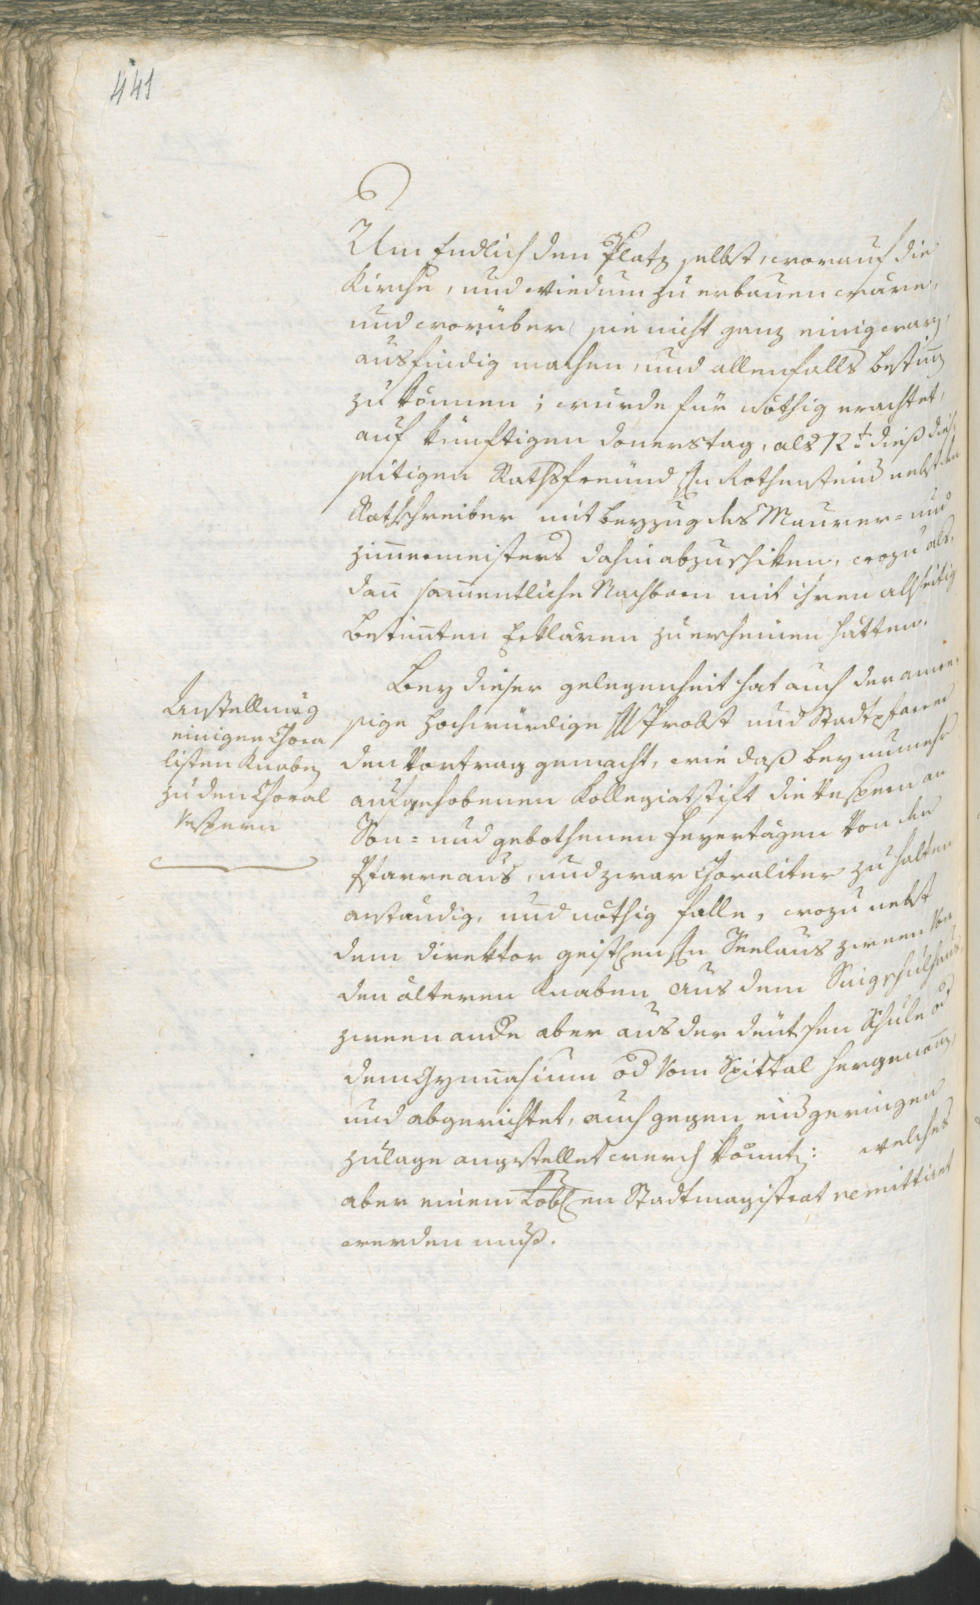 441
Um Endlich den Platz selbst, worauf die
Kirche, und wiedum zu erbauen wäre,
und worüber sie nicht ganz einig waren,
ausfindig machen, und allenfalls bestimen
zu können; wurde für nöthig erachtet,
auf künftigen donerstag, als 12t dieß dies
seitigen Rathsfreund Hn Rothenstein nebst dem
Rathschreiber mit beyzug des Maurer= und
zimmermeisters dahin abzuschiken, wozu als,
dan sammentliche Nachbarn mit ihren allseitig
bestimten Erklären zu erscheinen hätten.
Anstellung
einigen Chora
listen Knaben
zu den Choral
Vespern
Bey dieser gelegenheit hat auch der anwe,
sige hochwürdige H Probst und Stadtpfarrer
den Vortrag gemacht, wie daß bey nunmehr
aufgehobenen Kollegiatstift die Vespern an
Son= und gebothenen Feyertägen Von der
Pfarre aus, und zwar Choraliter zu halten
anständig, und nöthig falle, wozu nebst
dem direktor geistlen Hn Seelaus zween Von
den älteren Knaben aus dem Singschulhaus
zween ande aber aus der deutschen Schule od
dem Gymnasium od Vom Spittal hergenomen,
und abgerichtet, auch gegen eine geringen
zulage angstellet werdh könnten: welches
aber einem Löblen Stadtmagistrat remittiret
werden muß.